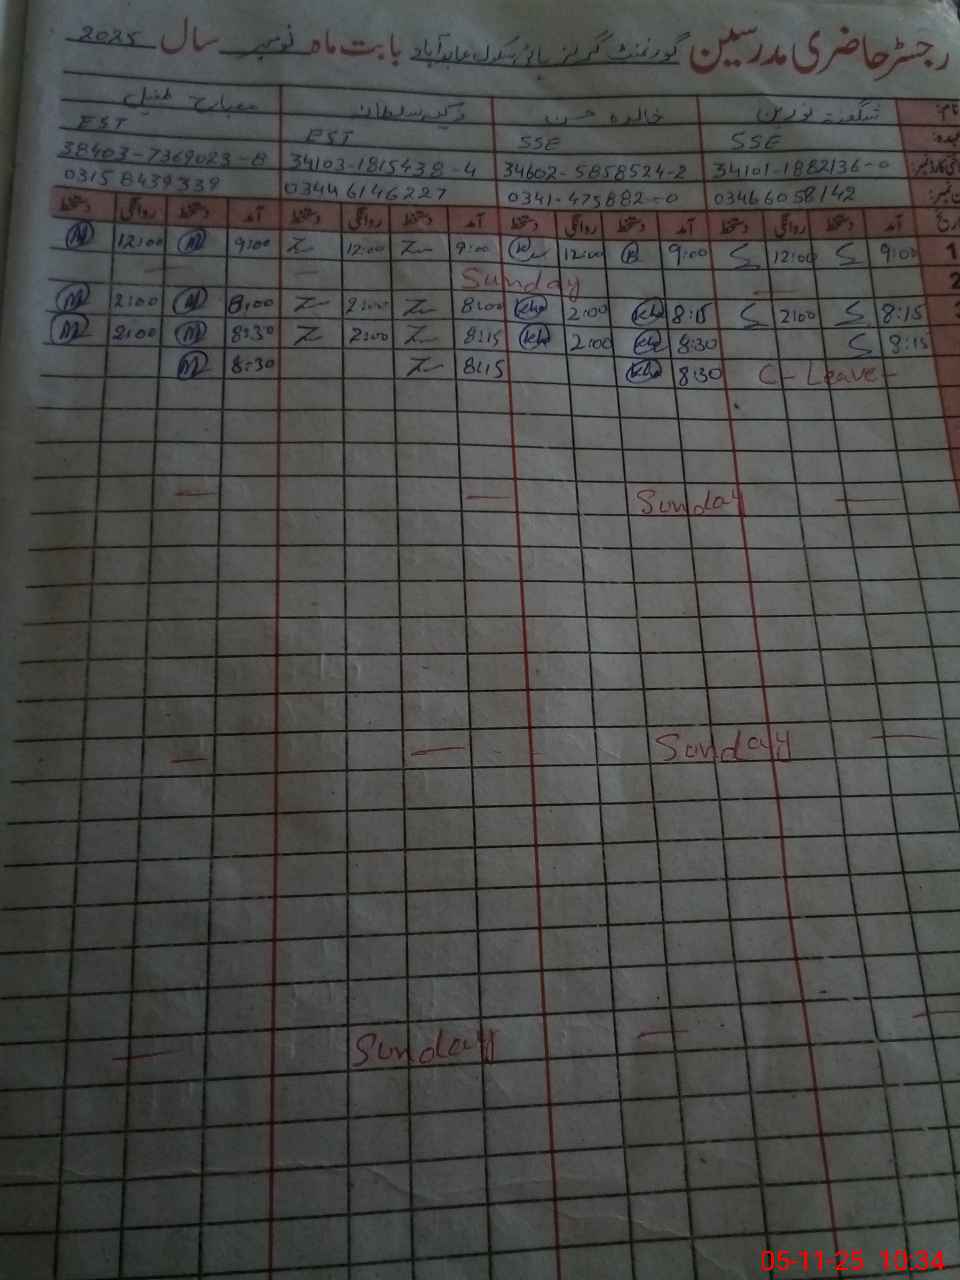 رجسٹر حاضری مدرسین گورنمنٹ گرلز ہائی سکول عابد آباد بابت ماہ نومبر سال 2025
نام: شگفتہ نورین خالدہ حسن سلطان مصباح طفیل
عہدہ: SSE SSE EST EST
34101-1882136-0 34602-5858524-2 34103-1815438-4 38403-7369023-8
03466058142 0341-475882-0 03446146227 03158439339
آمد دستخط روانگی دستخط آمد دستخط روانگی دستخط آمد دستخط روانگی دستخط آمد دستخط روانگی دستخط
1 9:00 12:00 9:00 B 12:00 9:00 Z 12:00 Z 9:00 M 12:00 M
2 Sunday
3 8:15 2:00 8:15 kha 2:00 kha 8:00 Z 2:00 Z 8:00 M 2:00 M
8:15 8:30 kha 2:00 kha 8:15 Z 2:00 Z 8:30 M 2:00 M
C- Leave- 8:30 kha 8:15 Z 8:30 M
Sunday
Sunday
Sunday
05-11-25 10:34